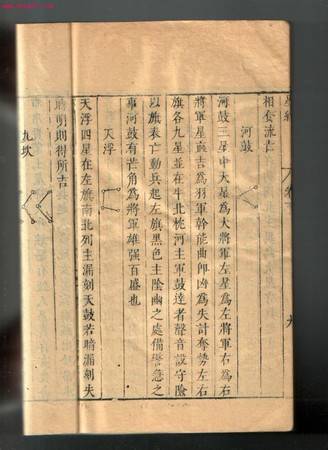 相奎流吉
河鼓
河鼓三星中大星為大將軍左星為左將軍右為右
將軍星直吉為羽軍幹能曲即凶為失計奪勢左右
旗各九星並在牛北枕河主軍鼓達者聲音設守險
以旗表亡動兵起左旗黑色主陰幽之處備警急之
事河鼓有芒角為將軍雄強百盛也
天浮
天浮四星在左旗南北列主漏刻天鼓若暗漏刻失
時明則得所吉
九坎